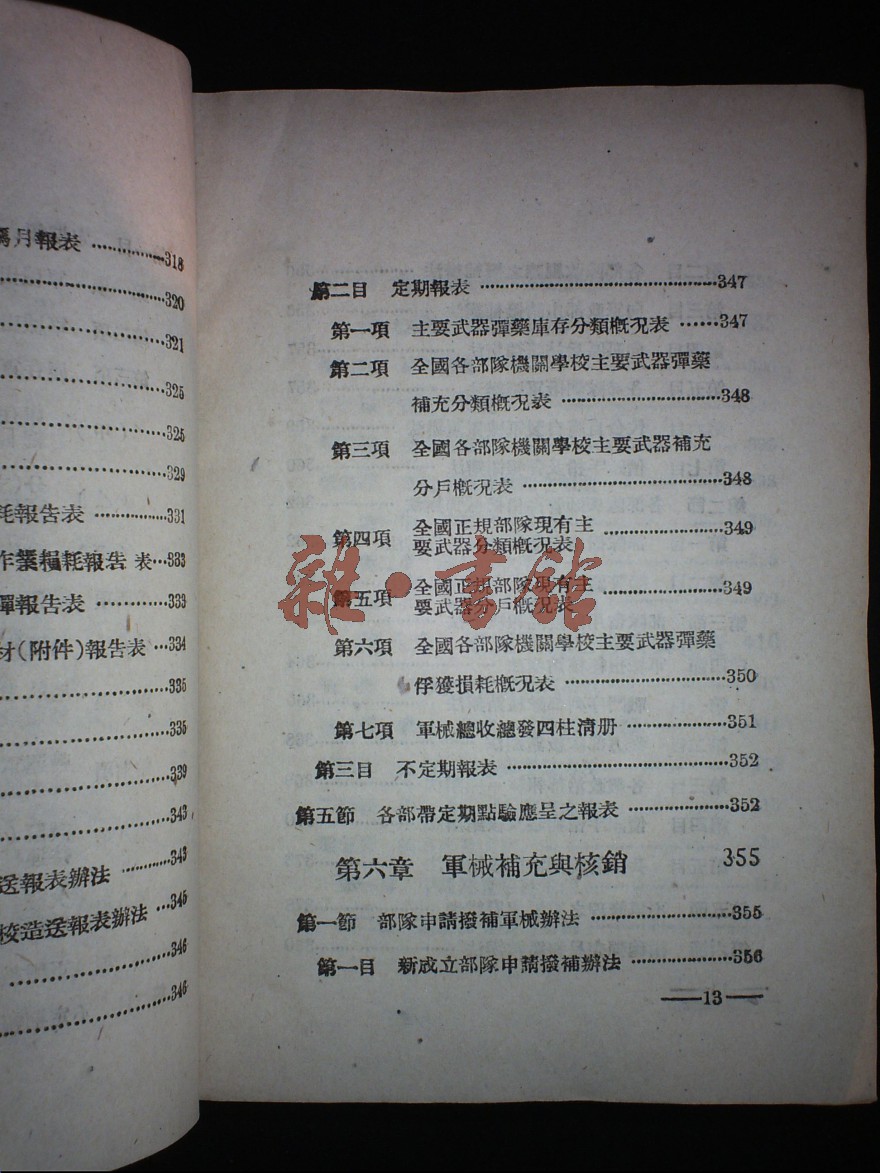 月報表 ………318
320
321
325
325
329
耗報告表 ………331
作業損耗報告表…333
彈報告表 ………333
材(附件)報告表…334
335
335
339
343
送報表辦法 ………343
校造送報表辦法…345
346
346
第二目 定期報表 ………347
第一項 主要武器彈藥庫存分類概况表 ……347
第二項 全國各部隊機關學校主要武器彈藥
補充分類概况表 ………348
第三項 全國各部隊機關學校主要武器補充
分戶概况表 ………348
第四項 全國正規部隊現有主
要武器分類概况表 ………349
第五項 全國正規部隊現有主
要武器分戶概况表 ………349
第六項 全國各部隊機關學校主要武器彈藥
俘獲損耗概况表 ………350
第七項 軍械總收總發四柱清册 ………351
第三目 不定期報表 ………352
第五節 各部帶定期點驗應呈之報表 ………352
第六章 軍械補充與核銷 355
第一節 部隊申請撥補軍械辦法 ………355
第一目 新成立部隊申請撥補辦法 ………356
——13——
雜·書館